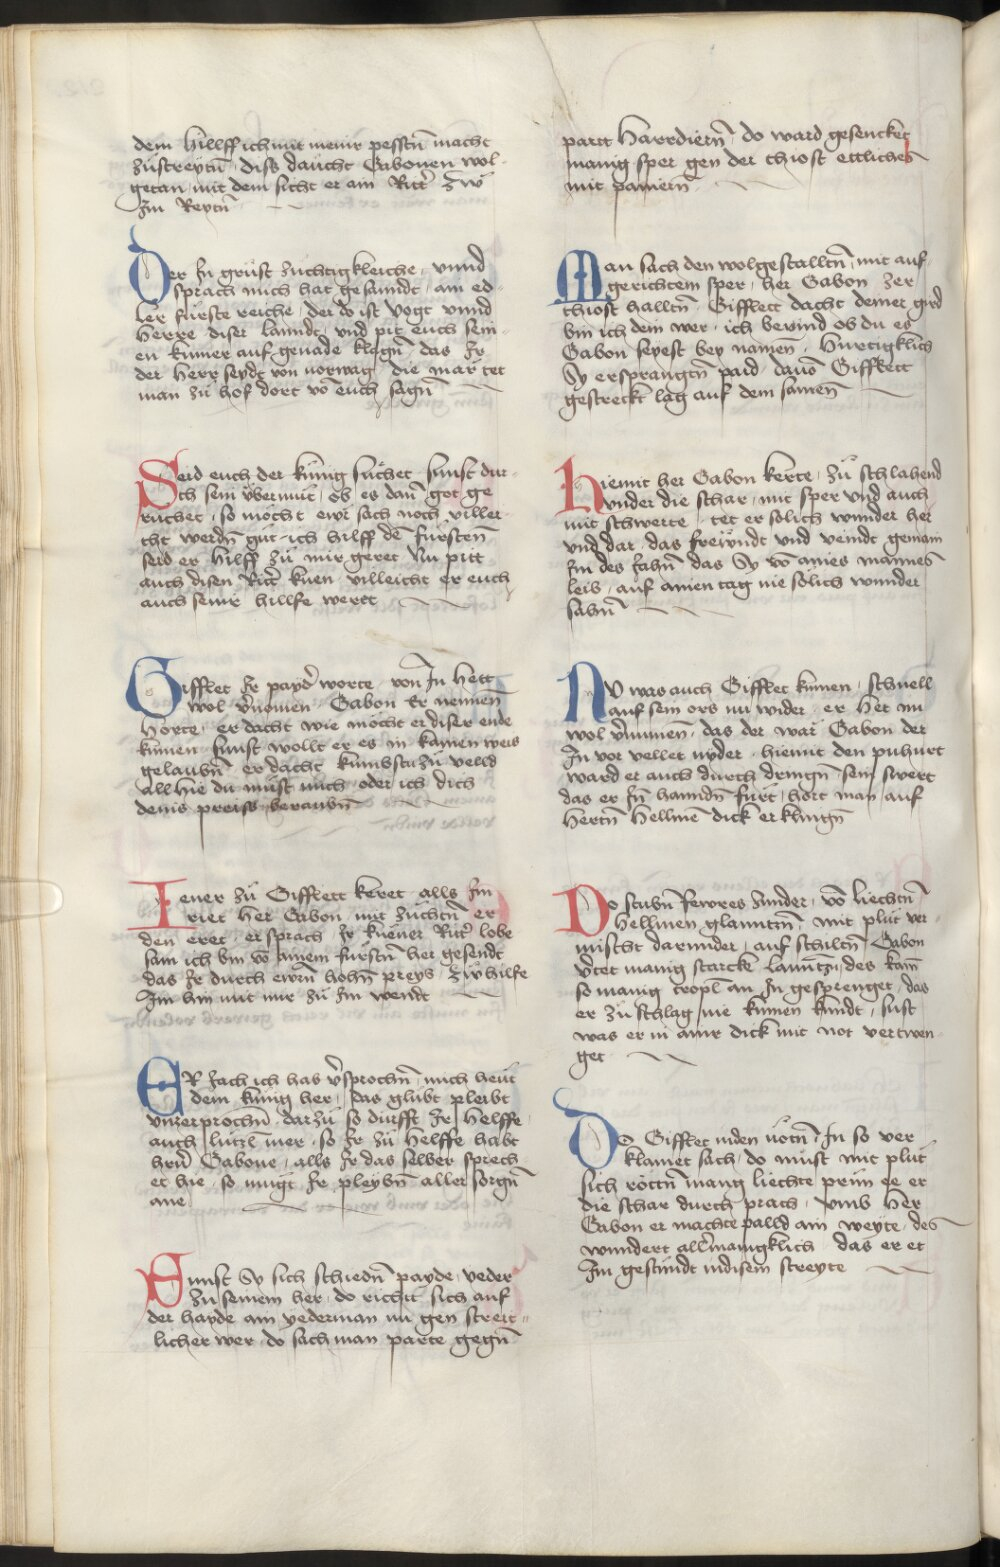 dem hillff ich mit meinr pesstn̄ macht
zustreytn̄ · diss daücht Gabonen wol-
getan / mit dem sicht er am Ritt̉ zw̆
Im Reytn̄
Der In grüst züchtigkleiche · vnnd
sprach mich hat gesanndt · ain ed-
ler fürste reiche / der do ist vogt vnnd
herre diser lanndt / vnd pit euch sein-
en kümer auf genade klagn̄ · das Ir
der herr seydt von norwag · die mär tet
man zü hof dort vō euch sagn̄
Seid euch der künig süchet · sunst dur-
ch sein v̈bermüt / ob es dan̄ got ge
rüchet / so möcht ewr sach noch viller
cht werdn̄ güt · ich hilff dē fürsten̄
seid er hilff zü mir geret Nu pitt
auch disen Ritt̉ küen · villeicht er euch
auch seinr hillfe wertt
Gifflet Ir payd̉ worte · von In hett
wol v̉nomen · Gabon Er nennen̄
horte · er dacht wie möcht er diser ende
kümen · sunst wollt er es in kainen weis
gelaubn̄ · er dacht kumbstu zu velld
all hie dü müst mich oder ich dich
deins preiss beraubn̄
Iener zü Gifflett keret · alls Im
riet her Gabon · mit züchtn̄ er
den eret · er sprach · Ir küener Ritt̉ lobe
sam ich bin vō ainem fürstn̄ her gesendt
das Ir durch ewrn̄ hohn̄ preys · zw̆ hilfe
Im hin mit mir zü Im wendt
ER Iach ich hab v̉sprochn̄ · mich heüt
dem künig her / das glübt pleibt
vnzerprochn̄ · darzü so dürfft Ir helffe
auch lützl mer · so Ir zü helffe habt
hrn̄ Gabone / alls Ir das selber sprech
et hie · so mügt Ir pleybn̄ aller sorgn̄
ane
Sunst Sy sich schiedn̄ payde / yeder
zü seinem her / do richt sich auf
der hayde ain yederman nu gen streit-
licher wer · do sach man parte gegn̄
partt harrdiern̄ / do ward gesencket
manig sper gen der thiost ettliches
mit paniern̄
Man sach den wolgestalltn̄ / mit auf-
gerichtem sper / her Gabon zer
thiost halltn̄ · Gifflett dacht deiner gird
bin ich dem wer · ich bevind ob du es
Gabon seyest bey namen̄ · Hurtigklich
Sy ersprangtn̄ paid / dauō Gifflett
gestreckt lag auf dem samen̄
Hiemit her Gabon kerte · zü schlahend
vnder die schar / mit sper vnd auch
mit schwerte · tet er solich wunder her
vnd dar / das freẅndt vnd veindt gemain
Im des Iahn̄ das Sy vō aines mannes
leib / auf ainen tag nie sölich wunder
sahn̄
NV was auch Gifflet kümen · schnell
auf sein ors nu wider · er het nu
wol v̉nümen̄ · das der war Gabon der
In vor vellet nyder · hiemit den puhurt
ward er auch durch dringn̄ · sein swert
das er In̄ hanndn̄ fürt / hort man auf
hertn̄ hellmē dick erklingn̄
Do stubn̄ fewres zinder / vō liechtn̄
hellmen glanntzn̄ / mit plüt ver
mischt darunder / auf schiltn̄ Gabon
v̉tet manig starcke lanntzn̄ / des kam
so manig tropl an In gesprenget / das
er zü schlag nie kümen kundt / sust
was er in ainr dick mit not vertwen-
get
Do Gifflet inden nötn̄ / In so ver
klamet sach / do müst mit plüt
sich rottn̄ mang liechte prün ee er
die schar durch prach / vmb her
Gabon er machte palld ain weyte / des
wundert all̉mäingklich · das er et
Im gesündt indisem streyte